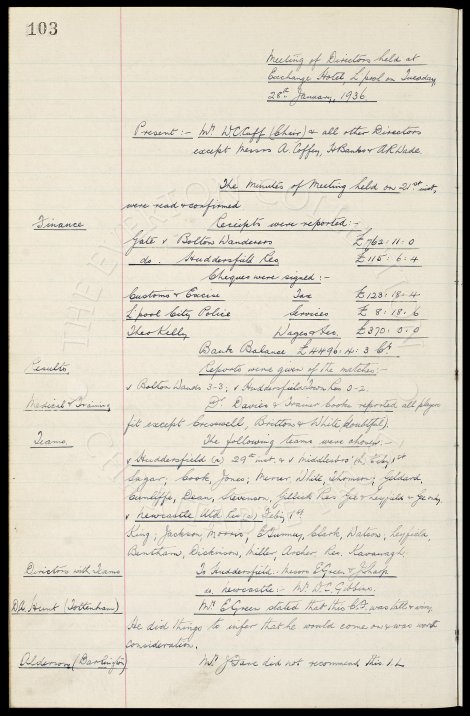 103
Meeting of Directors held at
Exchange Hotel, L'pool on Tuesday,
28th January, 1936.
Present :- Mr. W.C. Cuff (Chair) & all other Directors
except Messrs A. Coffey, H. Banks & A.R. Wade.
The Minutes of Meeting held on 21st inst,
were read & confirmed
Finance
Receipts were reported :-
Gate v Bolton Wanderers £762 : 11 : 0
do. . Huddersfield Res £115 : 6 : 4
Cheques were signed :-
Customs & Excise Tax £123 : 18 : 4
L'pool City Police Services £ 8 : 18 : 6
Theo Kelly Wages & £370 : 0 : 0
Bank Balance £4496 : 4 : 3 Cr.
Results
Reports were given of the matches :-
v Bolton Wands 3-3 ; v Huddersfield Town Res 3-2.
Medical & Training
Dr. Davies & Trainer Cooke reported all players
fit except Cresswell, Britton & White (doubtful).
Teams.
The following teams were chosen :-
v Huddersfield (a) 29th inst. & v Middlesbro' (h) Feby 1st
Sagar ; Cook, Jones ; Mercer, White, Thomson ; Geldard,
Cunliffe, Dean, Stevenson, Gillick Res Gee & Leyfield & Gee only.
v Newcastle Utd. Res (a) Feby 1st
King ; Jackson, Morris ; Clark, Watson, Leyfield,
Bentham, Dickinson, Miller, Archer Res. Kavanagh
Directors with Teams
To Huddersfield. Messrs E. Green & J. Sharp
" Newcastle :- Mr. Gibbins.
Hunt (Tottenham)
Mr. E. Green stated that this C.F. was tall &
He did things to infer that he would come on & was worth
consideration.
Alderson (Darlington)
Mr. did not recommend this I L